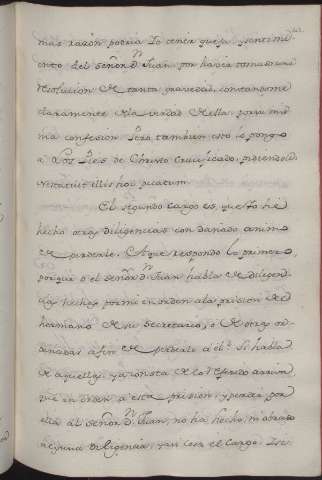 mas razon podria Yo tener queja y sentimi
ento del señor Dn. Juan, por haver tomado una
resolucion de tanta gravedad, constandome
claramente de la verdad de ella, por su mis
ma confesion. Pero tambien esto lo pongo
a los Pies de Christo Crucificado, pidiendole
ne statuat illis hoc peccatum.
El segundo cargo es, que Yo he
hecho otras diligencias con dañado animo
de perderle. A que respondo lo primero,
porque o el señor Dn. Juan habla de diligenci
as hechas por mi en orden a la prision del
hermano de su Secretario, o de otras or
denadas a fin de perderle a el. Si habla
de aquellas, ya consta de lo referido arriva,
que en orden a esta prision, y perder por
ella al señor Dn. Juan, no ha hecho, ni obrado
alguna diligencia, y asi cesa el cargo. Si